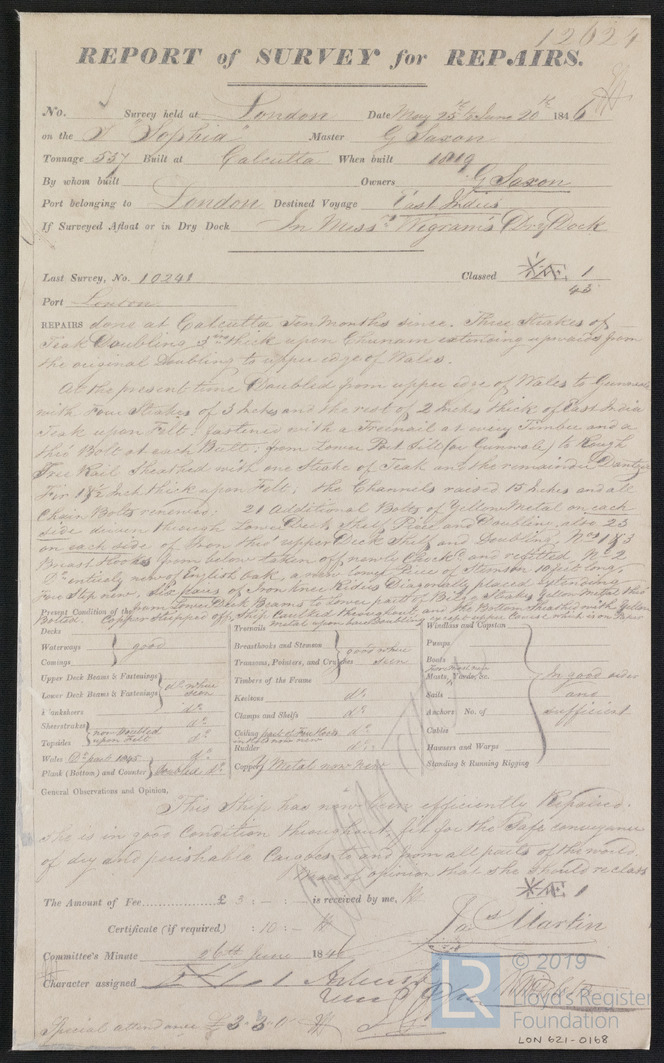 12624
REPORT of SURVEY for REPAIRS.
No. Survey held at London Date May 25th to June 20th 1846
on the S "Sophia" Master G Saxon
Tonnage 537 Built at Calcutta When built 1819
By whom built Owners G Saxon
Port belonging to London Destined Voyage East Indies
If Surveyed Afloat or in Dry Dock In Messrs Wigram's Dry Dock
Last Survey, No. 10241 Classed Æ 1
45
Port London
REPAIRS done at Calcutta Ten Months since. Three Strakes of
Teak Doubling 3 thick upon Chunam extending upwards from
the original Doubling to upper edge of Wales.
At the present time Doubled from upper edge of Wales to Gunwale
with Four Strakes of 3 Inches and the rest of 2 Inches thick of East India
Teak upon Felt: fastened with a Treenail at every Timber and a
thro' Bolt at each Butt: from Lower Port Sill (or Gunwale) to Rough
Tree Rail Sheathed with one Strake of Teak and the remainder Dantzic
Fir 1½ Inch thick upon Felt; the Channels raised 15 Inches and all
Chain Bolts renewed: 21 Additional Bolts of Yellow Metal on each
side driven through Lower Deck Shelf Piece and Doubling, also 23
on each side of Iron thro' upper Deck Shelf and Doubling, Nos 1 & 3
Breast Hooks from below taken off newly and refitted, No. 2
Do entirely new of English oak, a new Piece of Stemson 10 feet long,
Step new, six pairs of Iron Knee Riders Diagonally placed extending
from Lower Deck Beams to lower part of Bilge Strakes Yellow Metal thro'
Bolted. Copper stripped off, Ship Caulked throughout, and the Bottom Sheathed with Yellow
Metal upon
Present Condition of the
Decks
Waterways good
Comings
Upper Deck Beams & Fastenings
Lower Deck Beams & Fastenings do where seen
Planksheers do
Sheerstrakes now Doubled
Topsides upon Felt do
Wales Do part 1845 do
Plank (Bottom) and Counter doubled do
Treenails
Breasthooks and Stemson good where
Transoms, Pointers, and Crutches seen
Timbers of the Frame
Keelsons do
Clamps and Shelfs do
Ceiling do
Rudder do
Copper Y Metal now new
Windlass and Capstan
Pumps
Boats
Masts, Yards, &c. In good order
Sails and
Anchors No. of sufficient
Cables
Hawsers and Warps
Standing & Running Rigging
General Observations and Opinion,
This Ship has now been efficiently Repaired.
she is in good Condition throughout, fit for the Safe conveyance
of dry and perishable Cargoes to and from all parts of the world.
of opinion that she should reclass
Æ 1
The Amount of Fee £ 3 : - : - is received by me,
Certificate (if required) : 10 : -
Jas Martin
Committee's Minute 26th June 1846
Character assigned
Special attendance £3. 3. 0
LR
© 2019
Lloyd's Register
Foundation
LON 621-0168